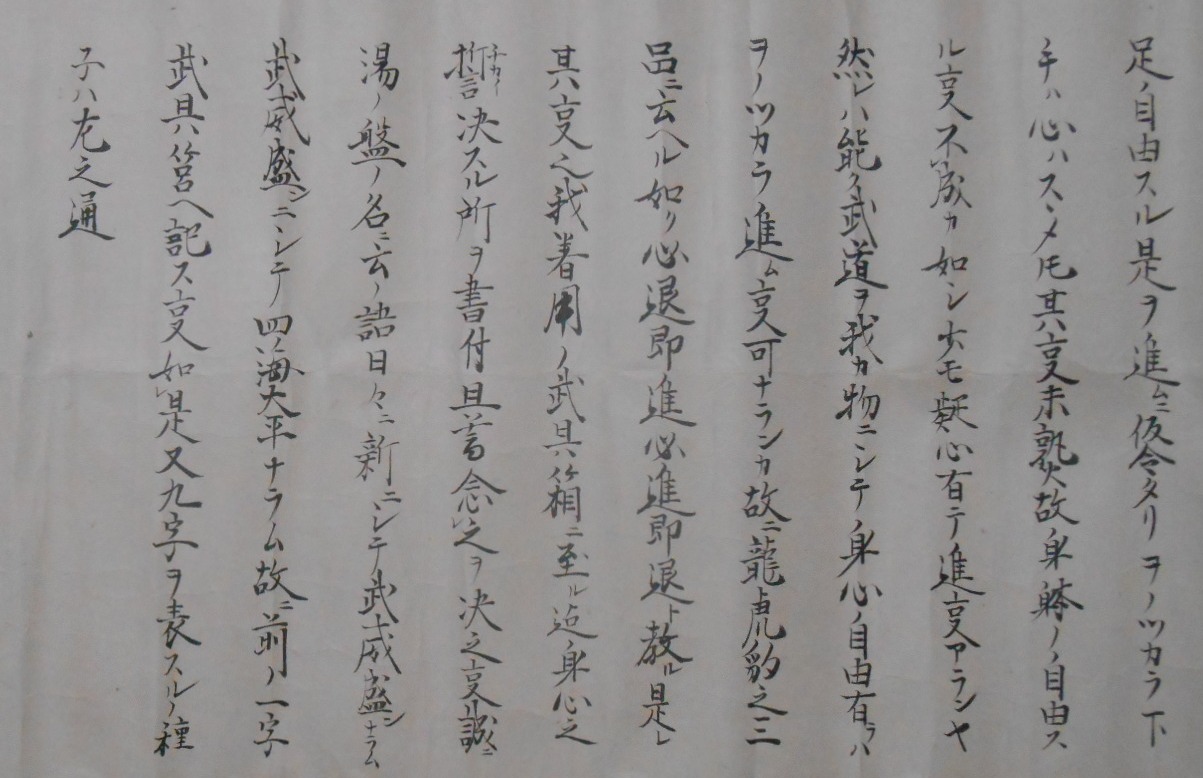 足ノ自由スル是ヲ進ムニ仮令タリヲノツカラ下
手ハ心ハスヽメ𪜈其叓未熟故ノ身躰ノ自由ス
ル叓不成カ如シ少モ疑心有テ進叓アランヤ
然レハ能ク武道ヲ我カ物ニシテノ身心ノ自由有ラハ
ヲノツカラ進ム叓可ナランカ故ニ龍虎豹之三
品ニ云ヘル如ク心退即進必進即退ト教ル是レ
其叓之我着用ノ武具箱ニ至ル迠ノ身心之
誓言决スル所ヲ書付且蓄念之ヲ决之叓誠ニ
湯ノ盤ノ名ニ云ノ語日々ニ新ニシテ武威盛ンナラム
武威盛ンニシテノ四ノ海大平ナラム故ニ前ノ一字
武具筥ヘ記ス叓如是又九字ヲ表スルノ種
子ハ左之通